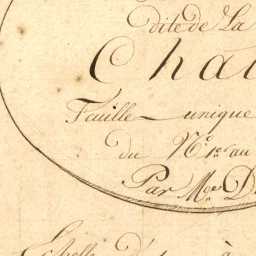 dite de La
Cha
Feuille unique
du N.º 1.er au
Par M.gr D
Echelle d
à